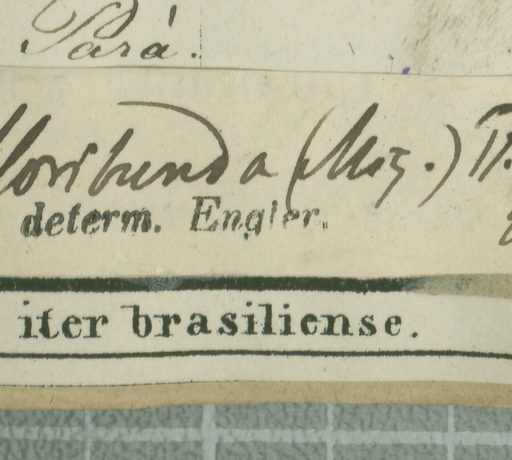 Pará.
floribunda (Miq.)
determ. Engler.
iter brasiliense.